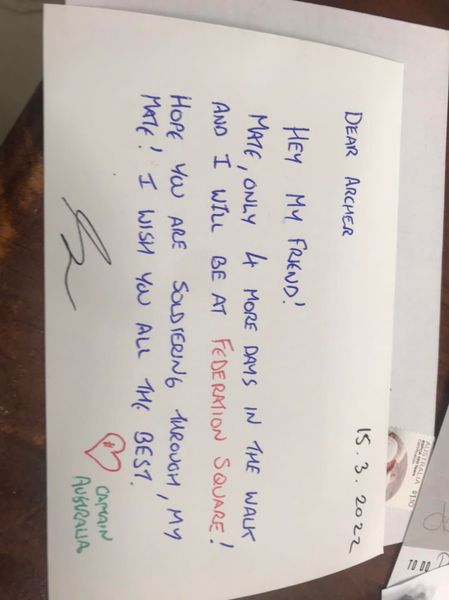 DEAR ARCHER
15.3.2022
HEY MY FRIEND!
MATE, ONLY 4 MORE DAYS IN THE WALK
AND I WILL BE AT FEDERATION SQUARE!
HOPE YOU ARE SOLDIERING THROUGH, MY
MATE! I WISH YOU ALL THE BEST.
CAPTAIN
AUSTRALIA
AUSTRALIA
TO DO